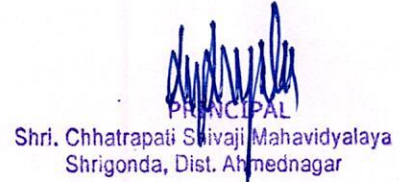 PRINCIPAL
Shri. Chhatrapati Shivaji Mahavidyalaya
Shrigonda, Dist. Ahmednagar